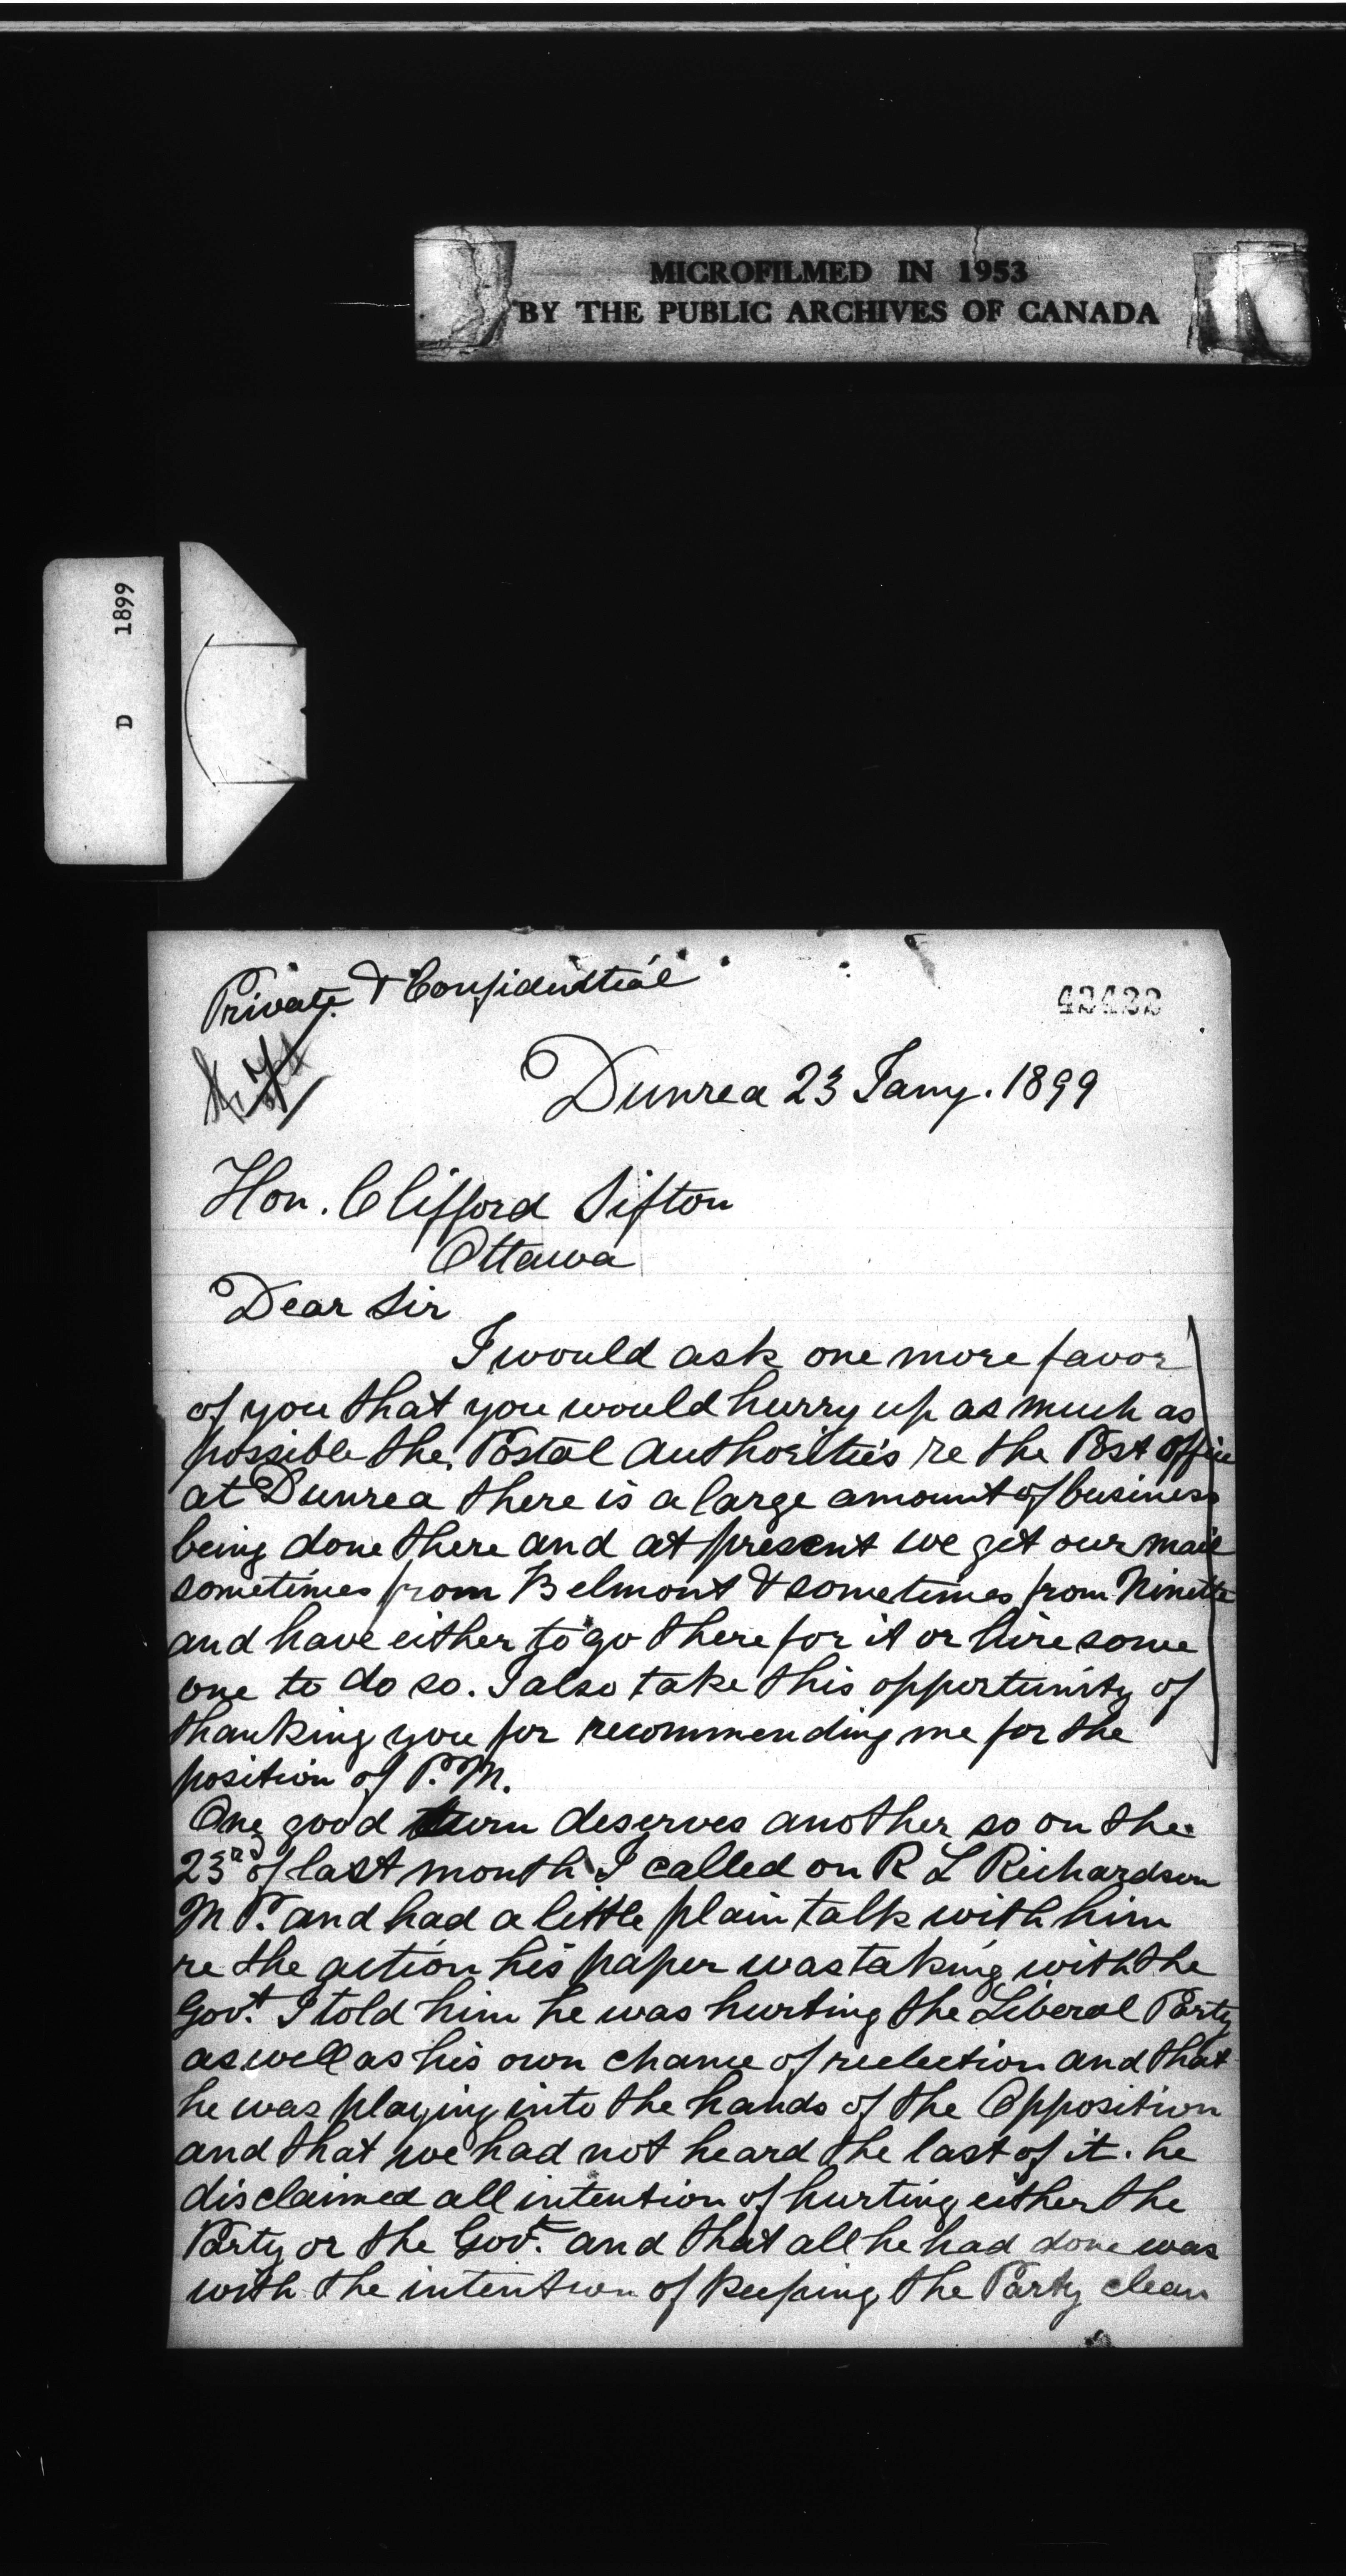 MICROFILMED IN 1953
BY THE PUBLIC ARCHIVES OF CANADA
D 1899
Private & Confidential
Dunrea 23 Jany. 1899
Hon. Clifford Sifton
Ottawa
Dear Sir
I would ask one more favor
of you that you would hurry up as much as
possible the Postal Authorities re the Post Office
at Dunrea there is a large amount of business
being done there and at present we get our mail
sometimes from Belmont & sometimes from Ninette
and have either to go there for it or hire some
one to do so. I also take this opportunity of
thanking you for recommending me for the
position of P.M.
One good turn deserves another so on the
23rd of last month I called on R L Richardson
M P. and had a little plain talk with him
re the action his paper was taking with the
Govt. I told him he was hurting the Liberal Party
as well as his own chance of reelection and that
he was playing into the hands of the Opposition
and that we had not heard the last of it. he
disclaimed all intention of hurting either the
Party or the Govt. and that all he had done was
with the intention of keeping the Party clean